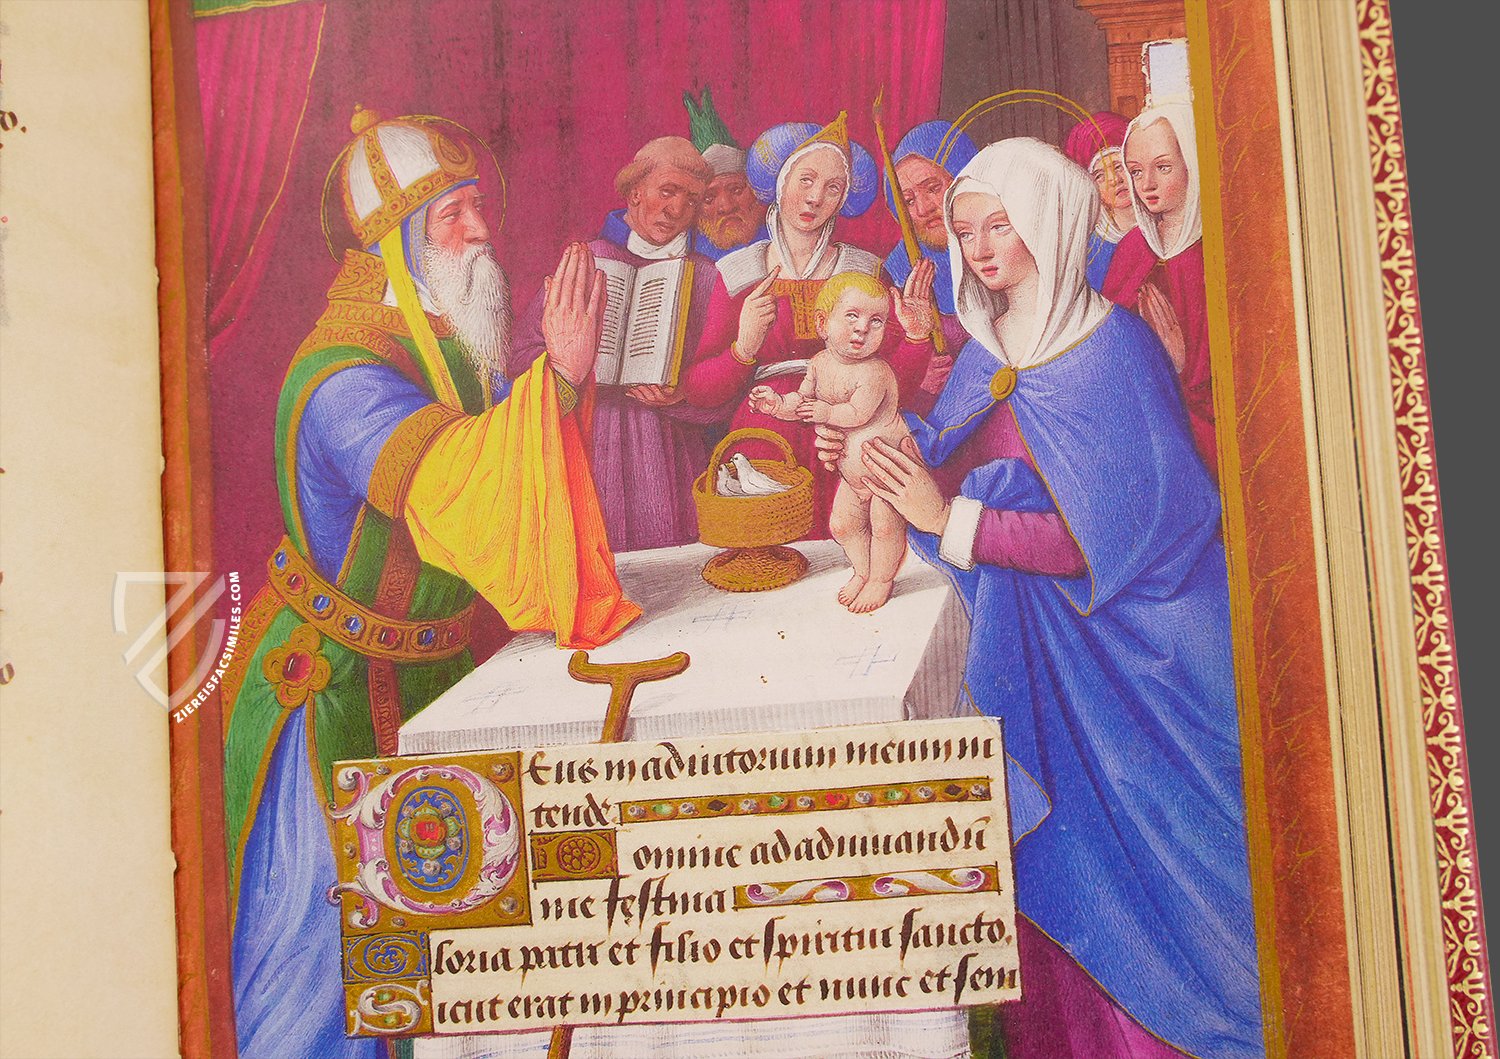 Deus in adiutorium meum in
tende
Domine ad adiuuandū
me festina
Gloria patri et filio et spiritui sancto.
Sicut erat in principio et nunc et sem
ZIEREISFACSIMILES.COM